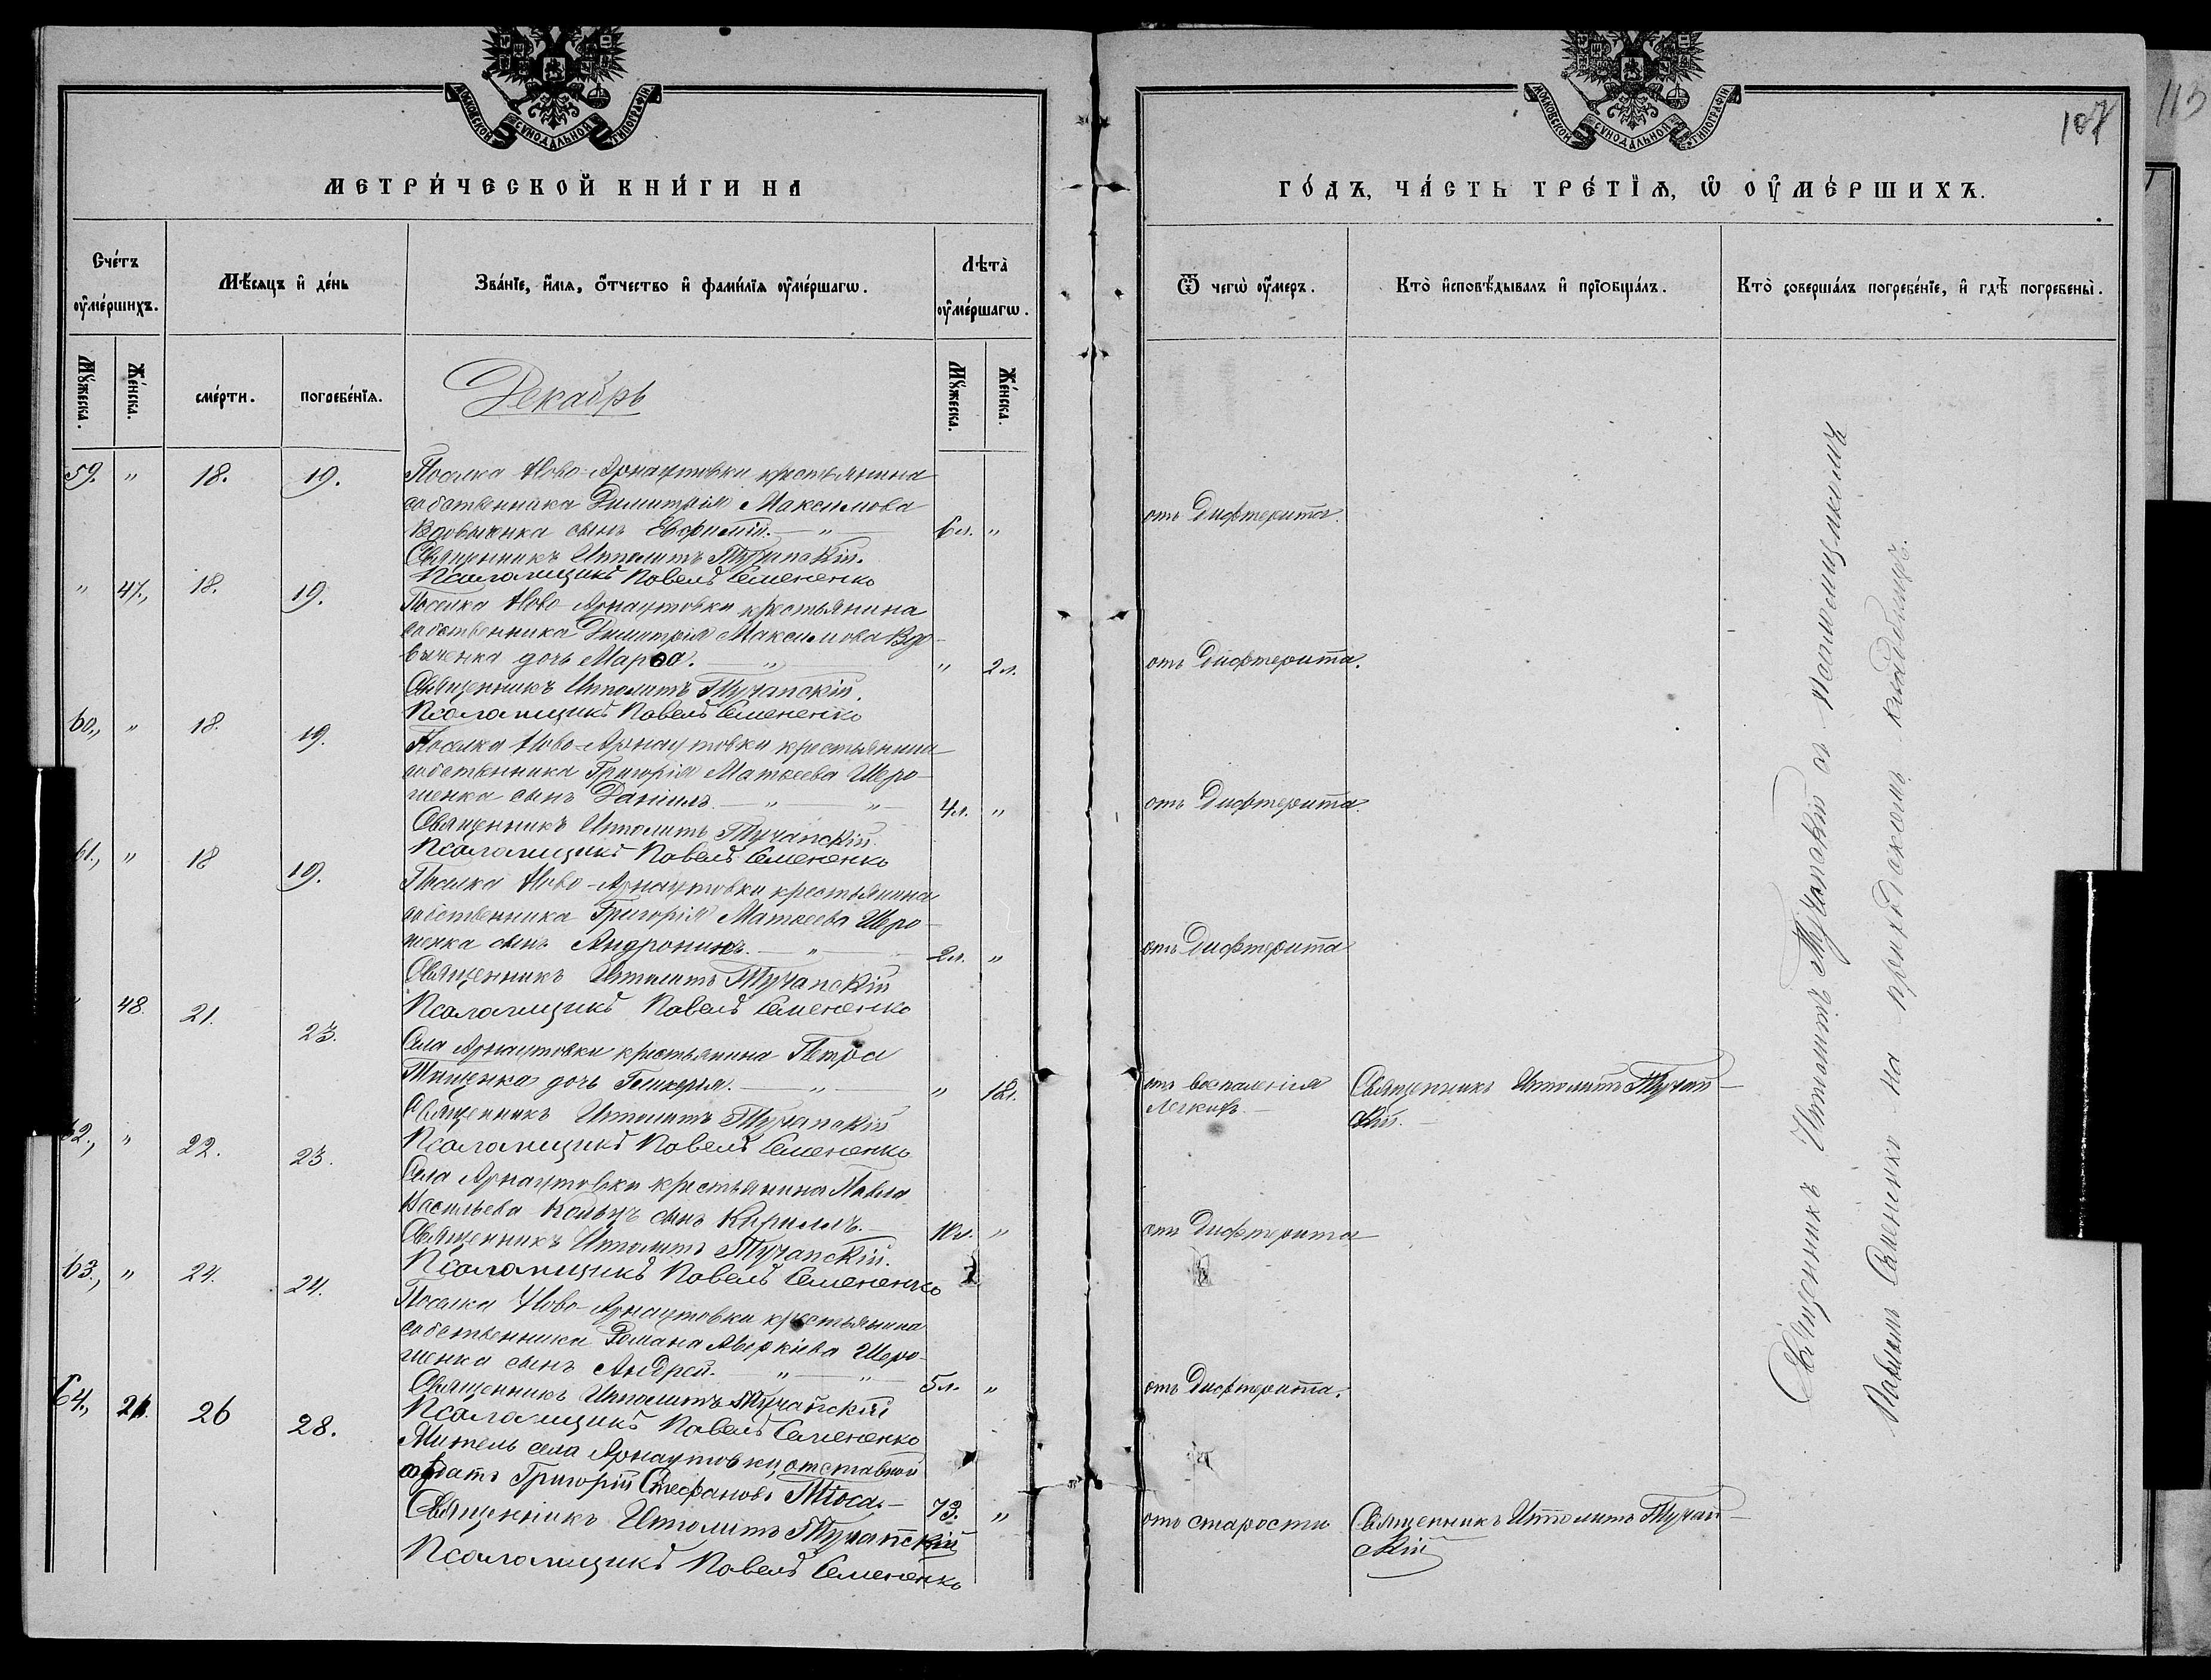 МОСКОВСКОЙ СѴНОДАЛЬНОЙ ТИПОГРАФІИ
МЕТРИ́ЧЕСКОЙ КНИ́ГИ НА
Сче́тъ ᲂу҆ме́ршихъ.
Мѣ́сѧцъ и҆ де́нь
Зва́нїе, и҆́мѧ, ѻ҆́тчество и҆ фами́лїѧ ᲂу҆ме́ршагѡ.
Лѣта̀ ᲂу҆ме́ршагѡ.
Мꙋ́жеска.
Же́нска.
сме́рти.
погребе́нїѧ.
Мꙋ́жеска.
Же́нска.
Декабрь
59. " 18. 19. Поселка Ново-Арнаутовки крестьянина
собственника Димитрія Максимова
Вдовыченка сынъ Евфимій. — " — 6 л. "
Священникъ Ипполитъ Тучапскій.
Псаломщикъ Павелъ Семененко
" 47., 18. 19. Поселка Ново-Арнаутовки крестьянина
собственника Димитрія Максимова Вдо-
выченка дочь Марѳа. — " — " 2 л.
Священникъ Ипполитъ Тучапскій.
Псаломщикъ Павелъ Семененко
60., " 18. 19. Поселка Ново-Арнаутовки крестьянина
собственника Григорія Матвеева Шеро-
шенка сынъ Даніилъ. — " — " — 4 л. "
Священникъ Ипполитъ Тучапскій.
Псаломщикъ Павелъ Семененко
61., " 18 19. Поселка Ново-Арнаутовки крестьянина
собственника Григорія Матвеева Шеро-
шенка сынъ Андроникъ. — " — 2 л. "
Священникъ Ипполитъ Тучапскій
Псаломщикъ Павелъ Семененко
" 48. 21. 23. Села Арнаутовки крестьянина Петра
Тищенка дочь Гликерія. — " — " 18 л.
Священникъ Ипполитъ Тучапскій
Псаломщикъ Павелъ Семененко
62., " 22. 23. Села Арнаутовки крестьянина Павла
Васильева сынъ Кириллъ. — 10 л. "
Священникъ Ипполитъ Тучапскій.
Псаломщикъ Павелъ Семененко
63., " 24. 24. Поселка Ново-Арнаутовки крестьянина
собственника Романа Аверкіева Шеро-
шенка сынъ Андрей. — " — " — 5 л. "
Священникъ Ипполитъ Тучапскій
Псаломщикъ Павелъ Семененко
64., 26 28. Житель села Арнаутовки, отставной
солдатъ Григорій Стефановъ — 73. "
Священникъ Ипполитъ Тучапскій
Псаломщикъ Павелъ Семененко
МОСКОВСКОЙ СѴНОДАЛЬНОЙ ТИПОГРАФІИ
107
113
ГО́ДЪ, ЧА́СТЬ ТРЕ́ТЇѦ, Ѡ҆ ОУ҆МЕ́РШИХЪ.
Ѿ чегѡ̀ ᲂу҆́меръ.
Кто̀ и҆сповѣ́дывалъ и҆ прїѡбща́лъ.
Кто̀ соверша́лъ погребе́нїе, и҆ гдѣ̀ погребены̀.
отъ Дифтерита.
отъ Дифтерита.
отъ Дифтерита.
отъ Дифтерита
отъ воспаленія Священникъ Ипполитъ Тучап-
легкихъ. — скій. —
отъ Дифтерита
отъ Дифтерита.
отъ старости Священникъ Ипполитъ Тучап-
скій
Священникъ Ипполитъ Тучапскій съ псаломщикомъ
Павломъ Семененко на приходскомъ кладбищѣ.